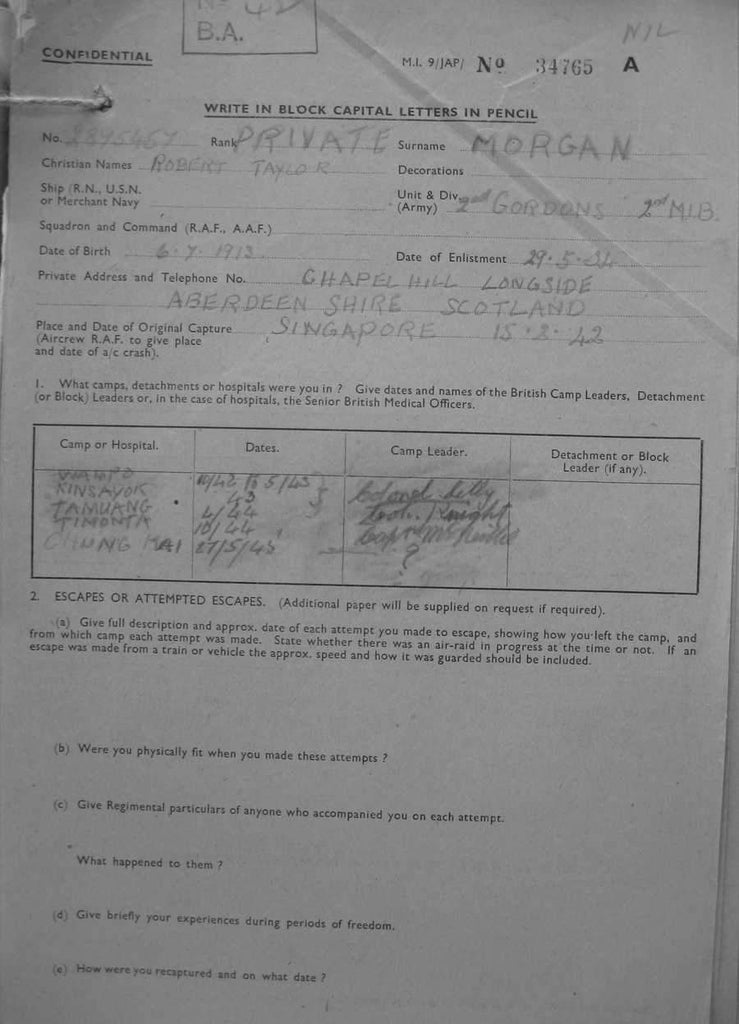 B.A.
NIL
CONFIDENTIAL
M.I. 9/JAP/ No 34765 A
WRITE IN BLOCK CAPITAL LETTERS IN PENCIL
No. Rank PRIVATE Surname MORGAN
Christian Names ROBERT TAYLOR Decorations
Ship (R.N., U.S.N. or Merchant Navy Unit & Div. (Army) 2nd GORDONS 2nd M.I.B.
Squadron and Command (R.A.F., A.A.F.)
Date of Birth 6.7.1913 Date of Enlistment 29.5.34
Private Address and Telephone No. CHAPEL HILL LONGSIDE
ABERDEEN SHIRE SCOTLAND
Place and Date of Original Capture SINGAPORE 15.2.42
(Aircrew R.A.F. to give place
and date of a/c crash).
1. What camps, detachments or hospitals were you in ? Give dates and names of the British Camp Leaders, Detachment
(or Block) Leaders or, in the case of hospitals, the Senior British Medical Officers.
Camp or Hospital. Dates. Camp Leader. Detachment or Block
Leader (if any).
WAMPO 11/42 to 5/43
KINSAYOK 43 Colonel Lilly
TAMUANG 4/44 Col. Knight
TIMONTA 10/44 Capt
CHUNG KAI 27/5/45 ?
2. ESCAPES OR ATTEMPTED ESCAPES. (Additional paper will be supplied on request if required).
(a) Give full description and approx. date of each attempt you made to escape, showing how you left the camp, and
from which camp each attempt was made. State whether there was an air-raid in progress at the time or not. If an
escape was made from a train or vehicle the approx. speed and how it was guarded should be included.
(b) Were you physically fit when you made these attempts ?
(c) Give Regimental particulars of anyone who accompanied you on each attempt.
What happened to them ?
(d) Give briefly your experiences during periods of freedom.
(e) How were you recaptured and on what date ?